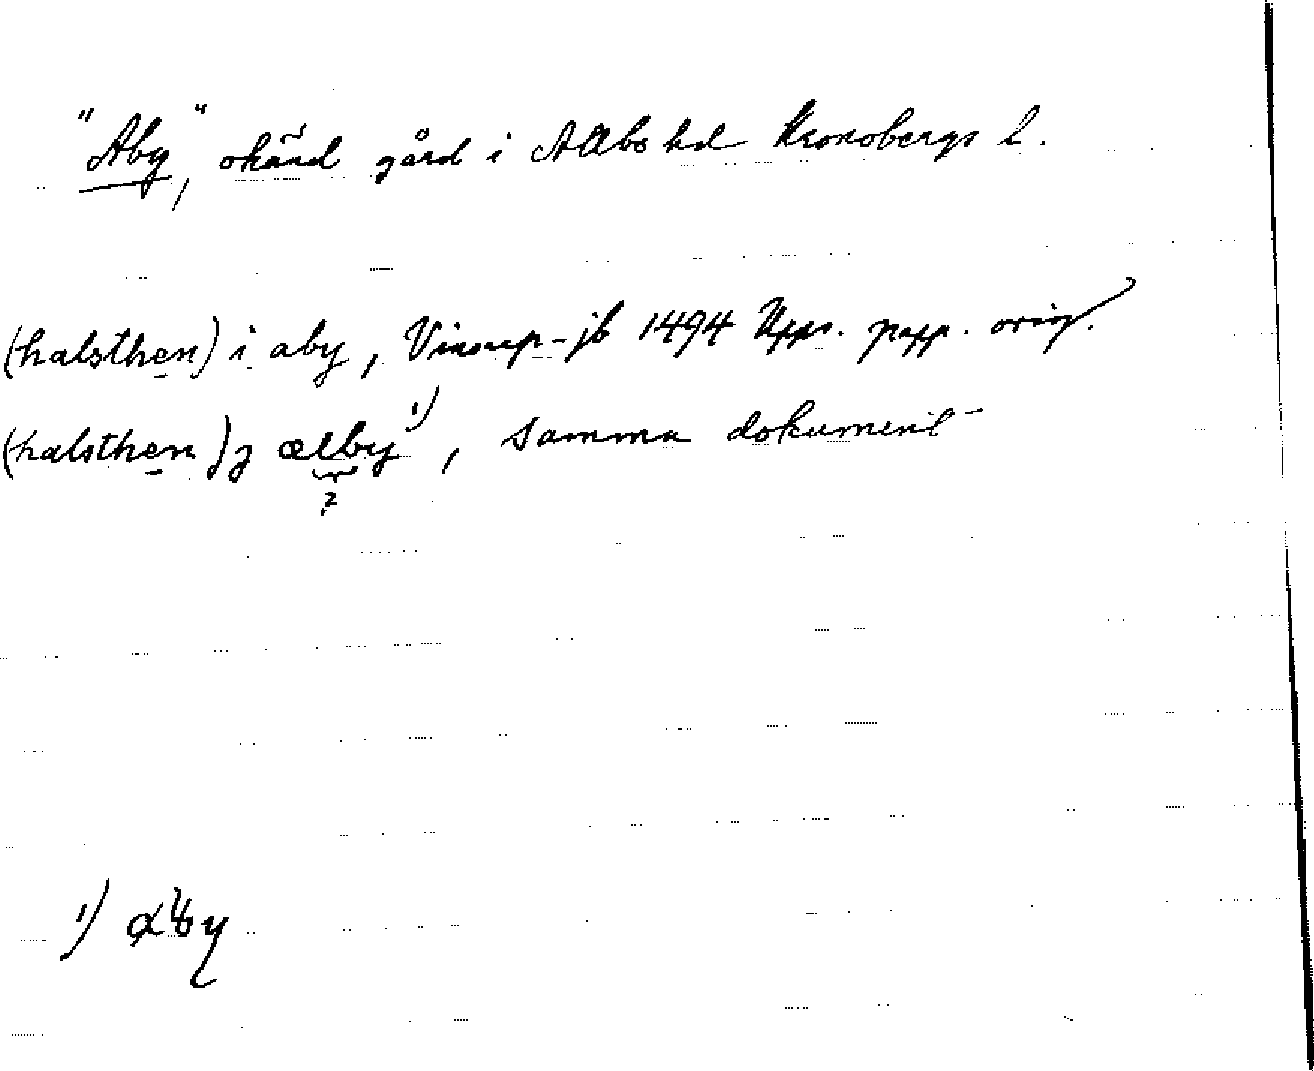 "Aby", okänd gård i Allbo hd Kronobergs l.
(halsthen) i aby, Vinorup-jb 1494 Upps. papp. orig.
(halsthen) j ælby 1), samma dokument
?
1)